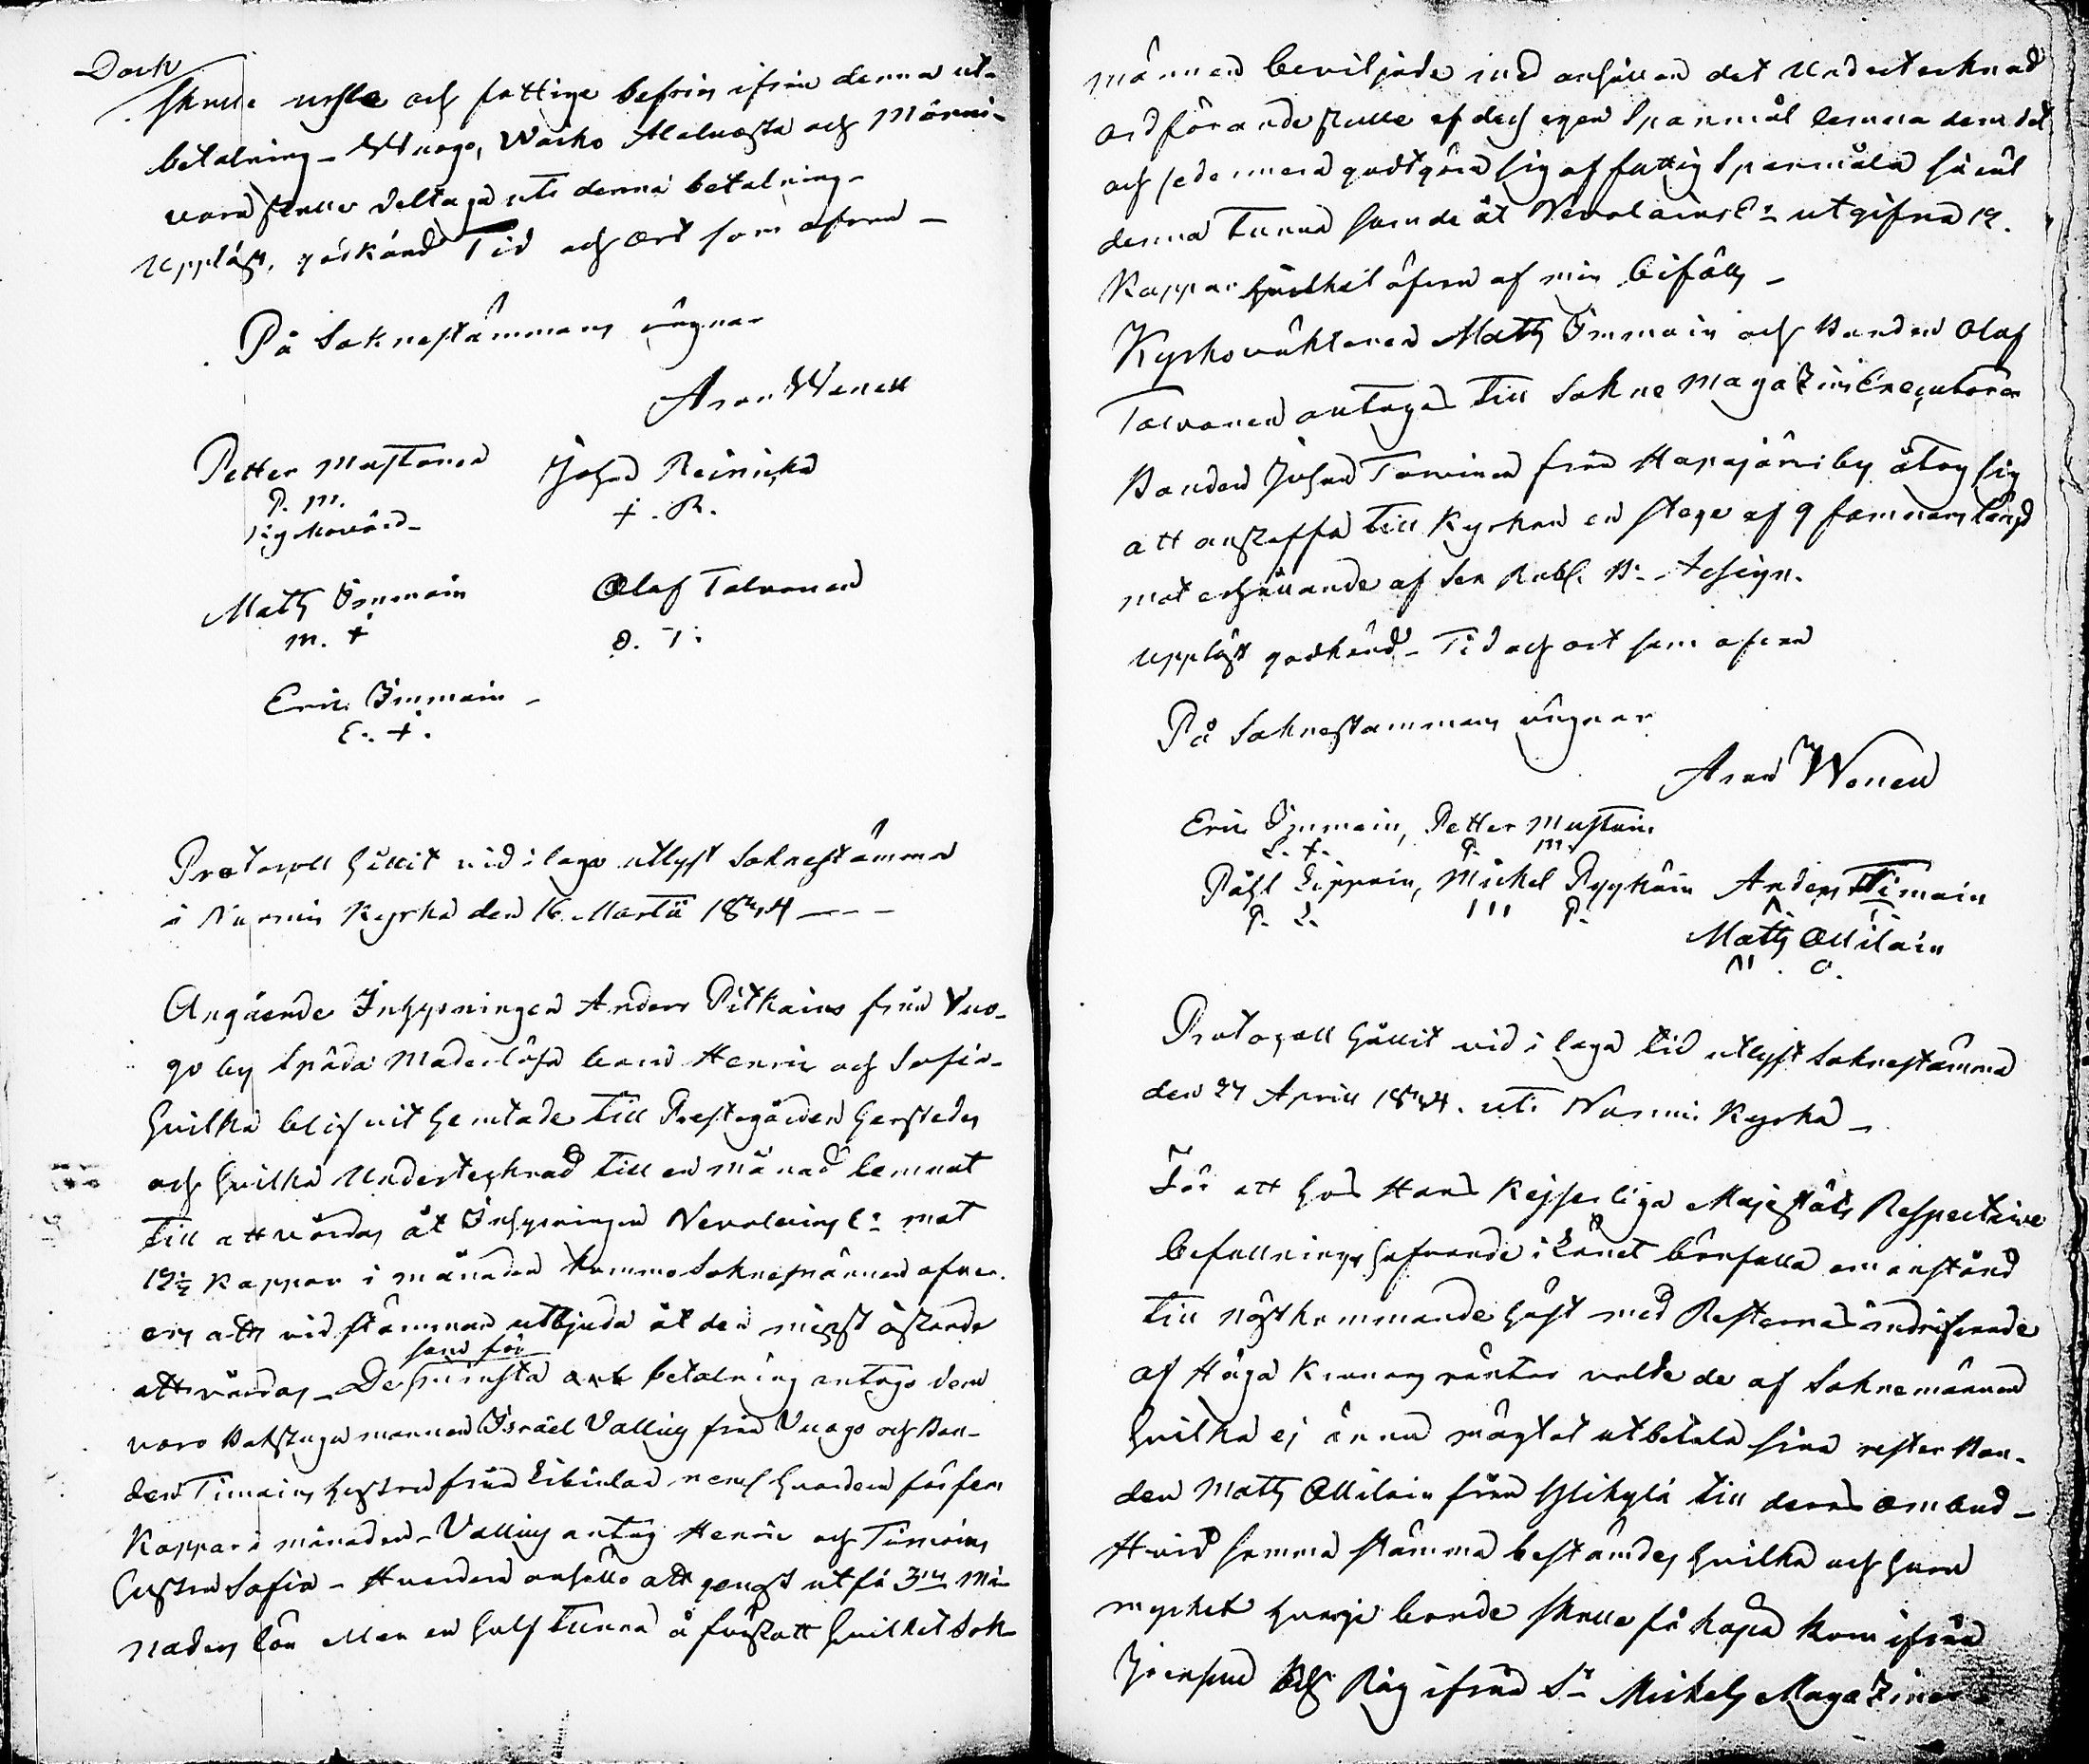 Dock
skulle usle och fattige befrias ifrån denna ut-
betalning - Wuogo, Waiko Maluasta och Mörni-
vara skulle deltaga uti denna betalning -
Uppläst, godkänd Tid och ort som ofvan -
På Soknestämmans vägnar
Aron Wenell
Petter Mustonen Johan Reinicka
P. M. + . R.
Kyrkovärd -
Matts Immoin Olof Tolvanen
m. + O. T.
Eric Immoin -
E. + .
Protocoll hållit vid i laga utlyst Soknestämma
i Nurmis Kyrka den 16 Martii 1844 - - -
Angående Inhysningen Anders Pitkains från Vuo-
go by späda Moderlösa barn Henric och Sofia -
hvilka blifvit hemtade till Prestegården hersteds
och hvilka Undertecknad till en månad lemnat
till att vårdas åt Inhysningen Nevolains E: mot
12½ Kappar i månaden kommo Soknemännen öfver-
ens att vid stämman utbjuda åt den minst åstunde
som för
att vårdas - De minsta betalning antogo dem
voro Backstugu mannen Israel Vallius från Vuogo och Bon-
den Timoins hustru från Libinlax neml hvardera för fem
Kappar i månaden - Vallius antog Henric och Timoins
hustru Sofia - Hvardera anhöllo att genast utfå 3ne Må-
naders lön eller en half tunna å förskott hvilket Sok-
männen beviljade med anhållan det Undertecknad
ordförande skulle af dess egen Spanmål lemna dem det
och sedermera godtgöra sig af fattig Spanmålen så väl
denna tunna som de åt Nevolains E: utgifna 12.
Kappar hvilket äfven af mig bifölls -
Kyrkovaktaren Matts Immoin och Bonden Olof
Tolvanen antogos till Sokne Magazins Executorer
Bonden Johan Torvinen från Haapajärvi by åtog sig
att anskaffa till Kyrkan en stege af 9 famnars längd
mot erhållande af Sex Rubl. B: Assign.
Uppläst godkänd - Tid och ort som ofvan
På Soknestämmans vägnar
Aron Wenell
Eric Immoin, Petter Mustoin
E. +. P. M.
Påhl Lippoin, Michel Ryykäin Anders Timoin
P. L. III P. A. T
Matts Ollilain
M . O.
Protocoll hållit vid i laga tid utlyst Soknestämma
den 27 April 1844. uti Nurmis Kyrka -
För att hos Hans Kejserliga Majestäts Respective
befallningshafvande i Länet bönfalla om anstånd
till nästkommande höst med Resternas indrifvande
af Höga Kronans räntor valde de af Soknemännen
hvilka ej ännu mägtat utbetala sina rester Bon-
den Matts Ollilain från Ylikylä till deras ombud -
Wid samma stämma bestämdes hvilka och huru
mycket hvarje bonde skulle få köpa korn ifrån
Joensuu och Råg ifrån St Michels Magaziner